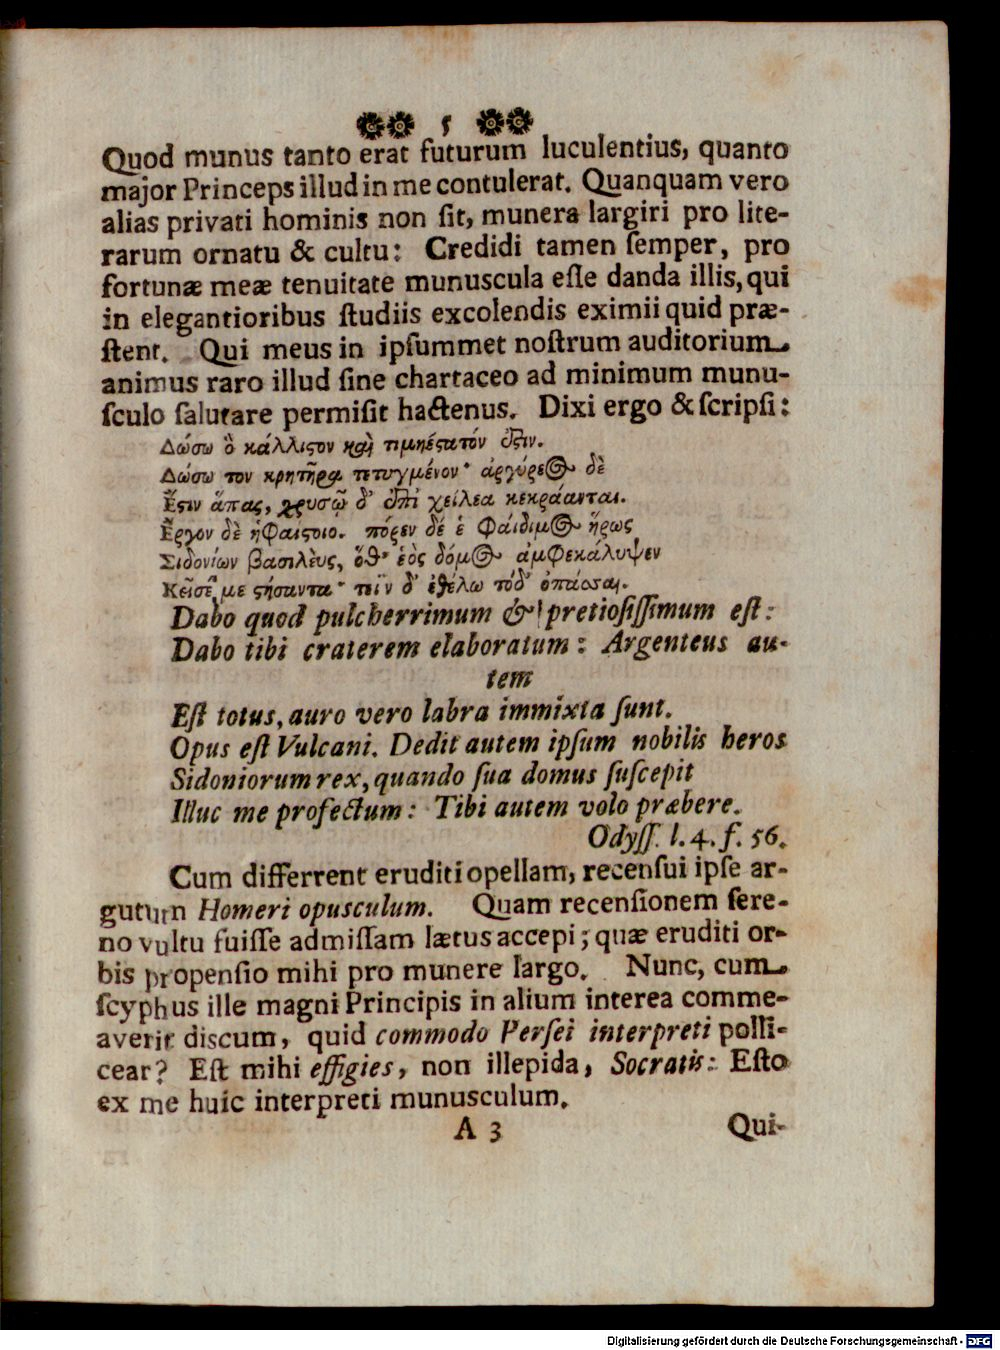 5
Quod munus tanto erat futurum luculentius, quanto
major Princeps illud in me contulerat. Quanquam vero
alias privati hominis non ſit, munera largiri pro lite-
rarum ornatu & cultu: Credidi tamen ſemper, pro
fortunæ meæ tenuitate munuscula eſſe danda illis, qui
in elegantioribus ſtudiis excolendis eximii quid præ-
ſtent. Qui meus in ipſummet noſtrum auditorium
animus raro illud ſine chartaceo ad minimum munu-
ſculo ſalutare permiſit hactenus. Dixi ergo & ſcripſi:
Δώσω ὃ κάλλιϛον καὶ τιμηέϛατόν ἐϛιν.
Δώσω τον κρητῆρα τετυγμένον· ἀργύρεος δὲ
Ἔϛιν ἅπας, χρυσῷ δ' ἐπὶ χείλεα κεκράανται.
Ἔργον δὲ ἡφαίϛοιο. πόρεν δέ ἑ Φαίδιμος ἥρως
Σιδονίων βασιλεὺς, ὅθ' ἑὸς δόμος ἀμφεκάλυψεν
Κεῖσέ με ϛήσαντα· τεῒν δ' ἐθέλω τόδ' ὀπάσσαι.
Dabo quod pulcherrimum & pretioſiſſimum eſt:
Dabo tibi craterem elaboratum: Argenteus au-
tem
Eſt totus, auro vero labra immixta ſunt.
Opus eſt Vulcani. Dedit autem ipſum nobilis heros
Sidoniorum rex, quando ſua domus ſuſcepit
Illuc me profectum: Tibi autem volo præbere.
Odyſſ. l. 4. f. 56.
Cum differrent eruditi opellam, recenſui ipſe ar-
gutum Homeri opusculum. Quam recenſionem ſere-
no vultu fuiſſe admiſſam lætus accepi; quæ eruditi or-
bis propenſio mihi pro munere largo. Nunc, cum
ſcyphus ille magni Principis in alium interea comme-
averit discum, quid commodo Perſei interpreti polli-
cear? Eſt mihi effigies, non illepida, Socratis: Eſto
ex me huic interpreti munusculum.
A 3
Qui-
Digitalisierung gefördert durch die Deutsche Forschungsgemeinschaft - DFG